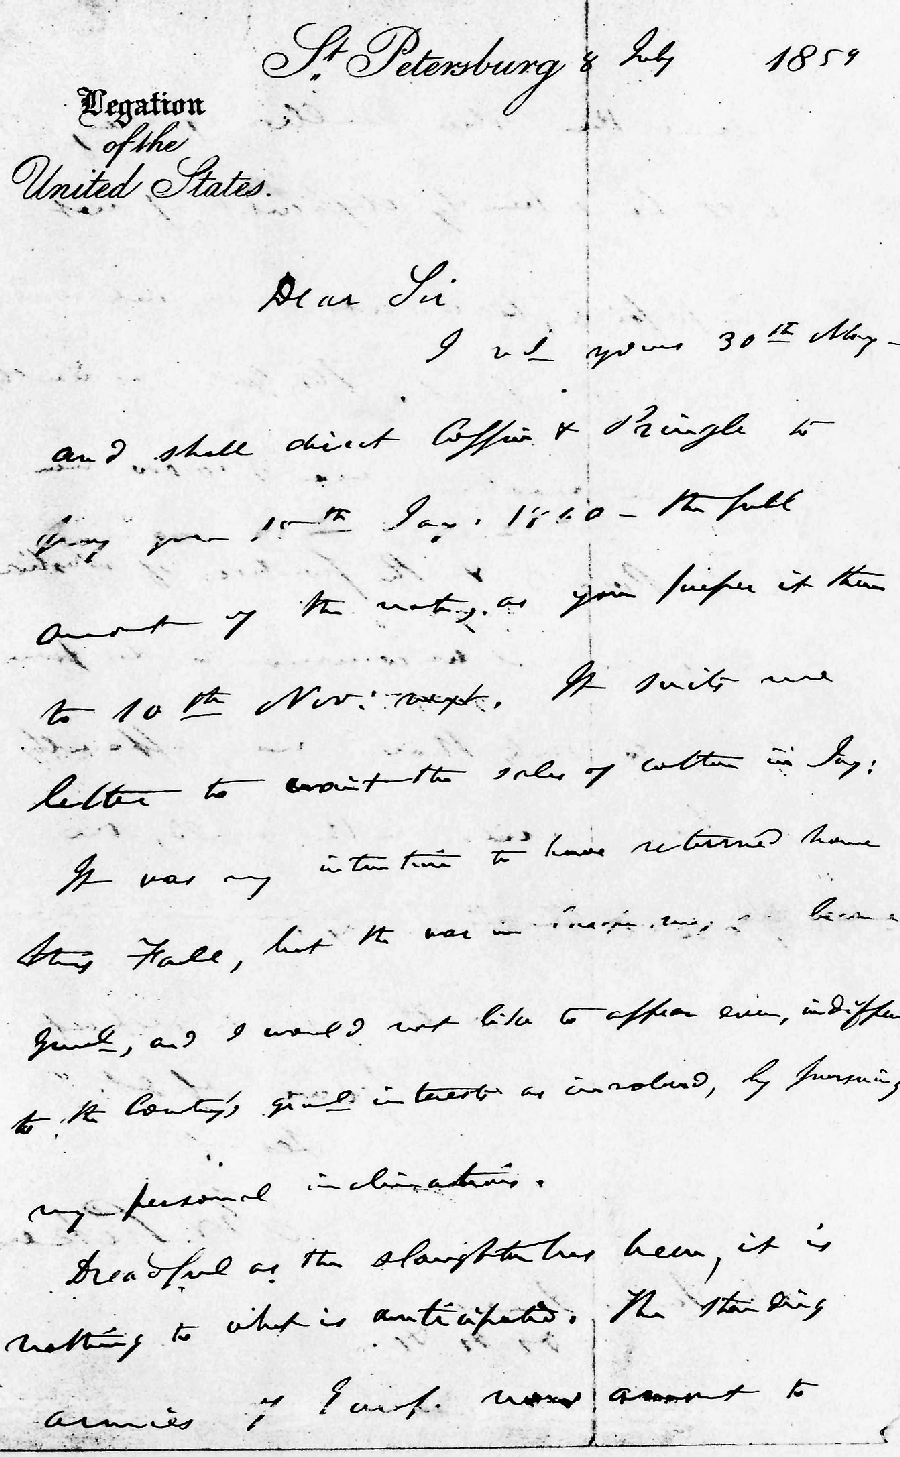 St. Petersburg 8 July 1859
Legation
of the
United States.
Dear Sir
I recd yours 30th May -
and shall direct Coffin & Pringle to
pay you 10th Jay: 1860 - the full
amount of the note, as you prefer it then
to 10th Nov: next. It suits me
better to await the sales of cotton in Jay:
It was my intention to have returned home
this Fall, but the war in may become
Genl, and I would not like to appear even, indiffer
to the Country's genl interests as involved, by pursuing
my personal inclinations.
Dreadful as the slaughter has been, it is
nothing to what is anticipated. The standing
armies of Europe now amount to